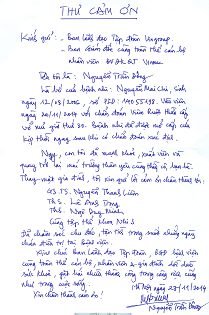 THƯ CẢM ƠN
Kính gửi: - Ban lãnh đạo Tập đoàn Vingroup.
- Ban Giám đốc cùng toàn thể cán bộ
nhân viên BVĐKQT Vinmec
Tôi tên là: Nguyễn Trần Đông
Là bố của bệnh nhi: Nguyễn Mai Chi, sinh
ngày 12/03/2006, số PID: Vào viện
ngày 20/11/2014 với chẩn đoán Viêm Ruột thừa cấp
về mổ giờ thứ 30. Bệnh nhi đã được mổ cấp cứu
kịp thời ngay sau khi có chẩn đoán xác định.
Nay, con tôi đã mạnh khoẻ, xuất viện và
quay trở lại mái trường thân yêu cùng thầy cô, bạn bè.
Thay mặt gia đình, tôi xin gửi lời cảm ơn chân thành tới:
GS.TS. Nguyễn Thanh Liêm
ThS. Lê Anh Dũng
ThS. Ngô Duy Minh
Cùng tập thể khoa Nhi 3
Đã chăm sóc chu đáo, tận tình trong suốt những ngày
cháu điều trị tại Bệnh viện.
Kính chúc Ban lãnh đạo Tập đoàn, BGĐ bệnh viện
cùng toàn thể cán bộ, nhân viên và gia đình dồi dào
sức khoẻ, gặt hái nhiều thành công trong công việc cũng
như trong cuộc sống.
Xin chân thành cảm ơn!
Hà Nội ngày 27/11/2014
Nguyễn Trần Đông